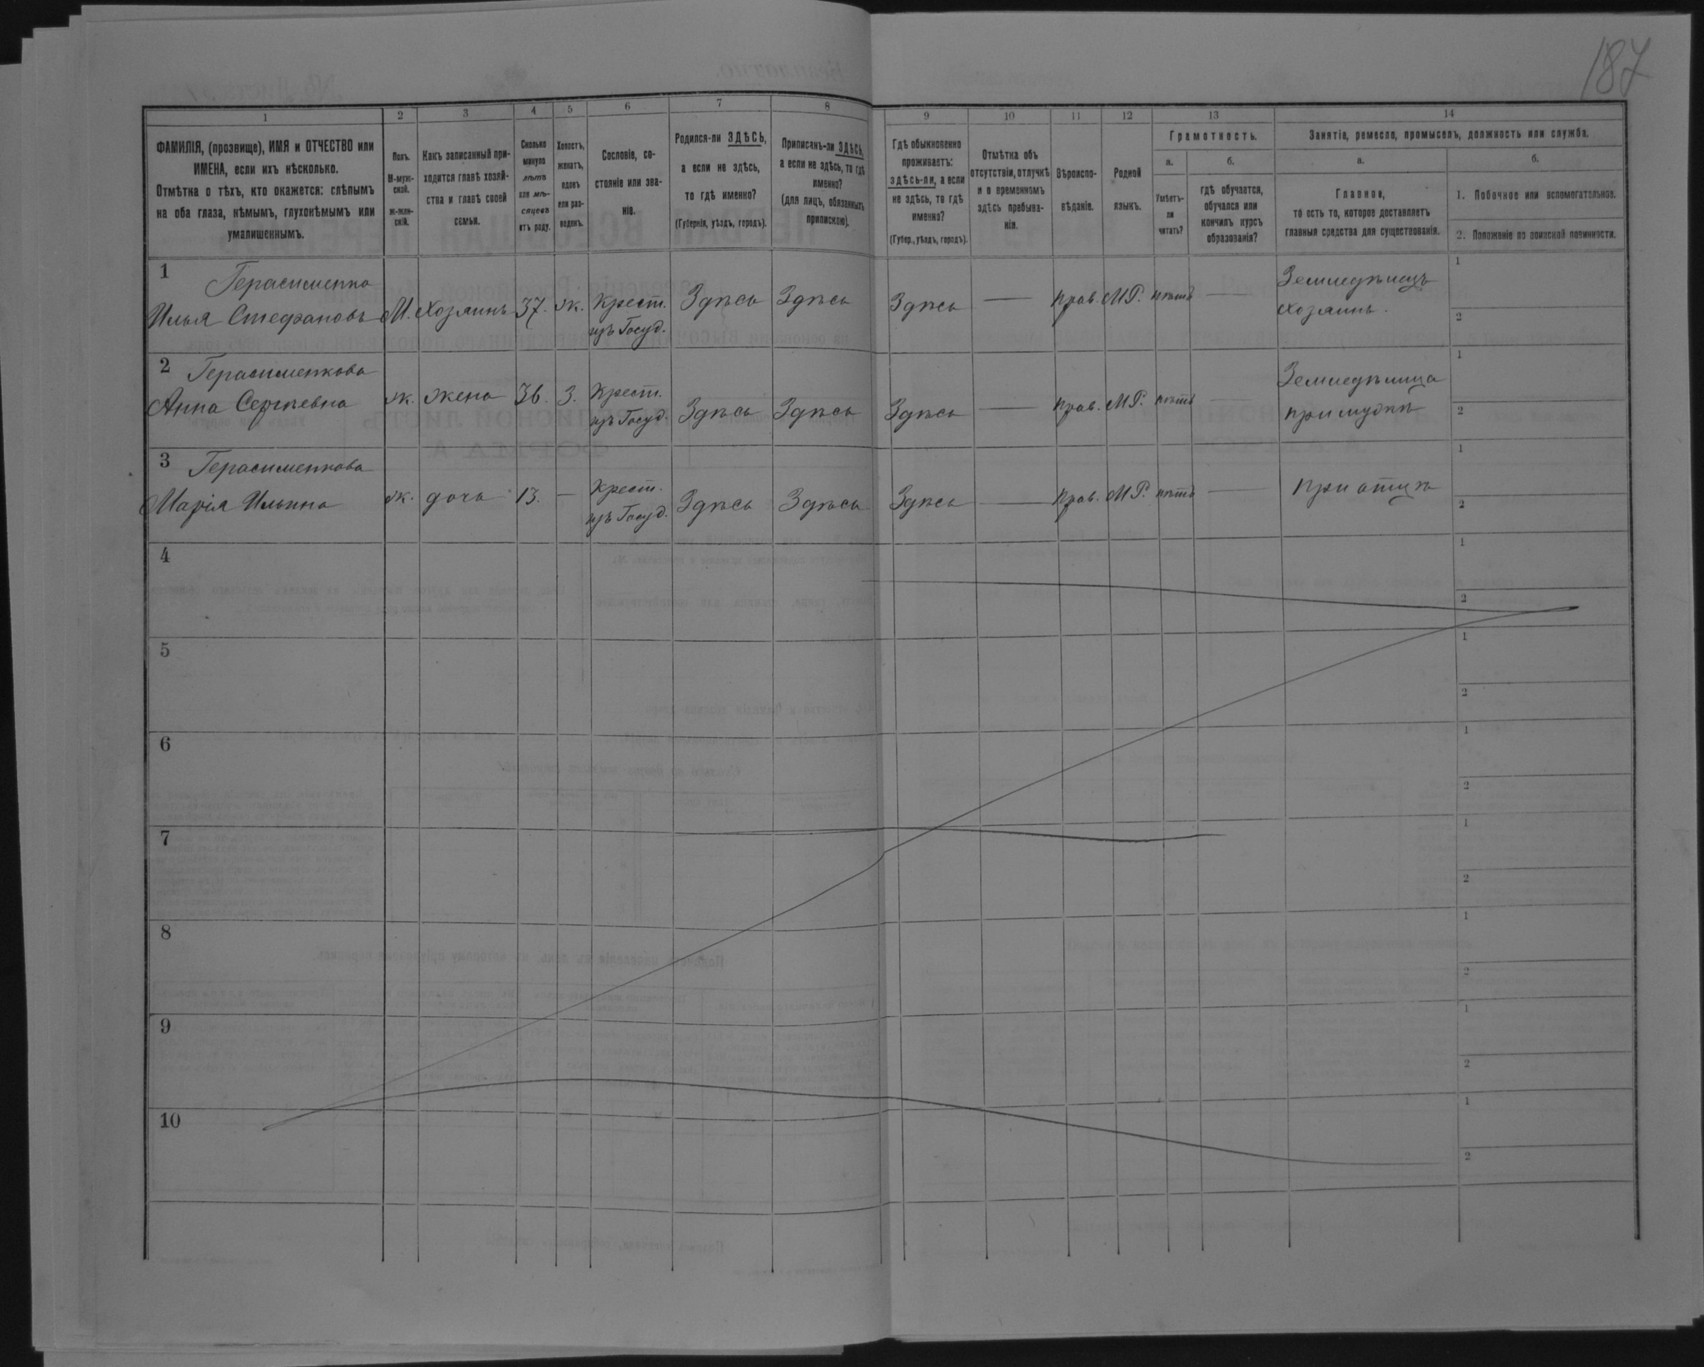 187
1
2
3
4
5
6
7
8
9
10
11
12
13
14
ФАМИЛІЯ, (прозвище), ИМЯ и ОТЧЕСТВО или
ИМЕНА, если ихъ нѣсколько.
Отмѣтка о тѣхъ, кто окажется: слѣпымъ
на оба глаза, нѣмымъ, глухонѣмымъ или
умалишеннымъ.
Полъ.
М-муж-
ской.
Ж-жен-
скій.
Какъ записанный при-
ходится главѣ хозяй-
ства и главѣ своей
семьи.
Сколько
минуло
лѣтъ
или мѣ-
сяцевъ
отъ роду.
Холостъ,
женатъ,
вдовъ
или раз-
веденъ.
Сословіе, со-
стояніе или зва-
ніе.
Родился-ли ЗДѢСЬ,
а если не здѣсь,
то гдѣ именно?
(Губернія, уѣздъ, городъ).
Приписанъ-ли ЗДѢСЬ,
а если не здѣсь, то гдѣ
именно?
(для лицъ, обязанныхъ
припискою).
Гдѣ обыкновенно
проживаетъ:
здѣсь-ли, а если
не здѣсь, то гдѣ
именно?
(Губер., уѣздъ, городъ).
Отмѣтка объ
отсутствіи, отлучкѣ
и о временномъ
здѣсь пребыва-
ніи.
Вѣроиспо-
вѣданіе.
Родной
языкъ.
Грамотность.
а.
Умѣетъ-
ли
читать?
б.
гдѣ обучается,
обучался или
кончилъ курсъ
образованія?
Занятіе, ремесло, промыселъ, должность или служба.
а.
Главное,
то есть то, которое доставляетъ
главныя средства для существованія.
б.
1. Побочное или вспомогательное.
2. Положеніе по воинской повинности.
1 Герасименко
Илья Стефановъ М. Хозяинъ 37. ж. Крест. Здѣсь Здѣсь Здѣсь — прав. МР. нѣтъ — Земледѣлецъ 1
изъ Госуд. хозяинъ. 2
2 Герасименкова
Анна Сергѣевна ж. жена 36. З. Крест. Здѣсь Здѣсь Здѣсь — прав. МР. нѣтъ — Земледѣлица 1
изъ Госуд. при мужѣ 2
3 Герасименкова
Марія Ильина ж. дочь 13. — Крест. Здѣсь Здѣсь Здѣсь — прав. МР. нѣтъ — при отцѣ 1
изъ Госуд. 2
4 1
2
5 1
2
6 1
2
7 1
2
8 1
2
9 1
2
10 1
2